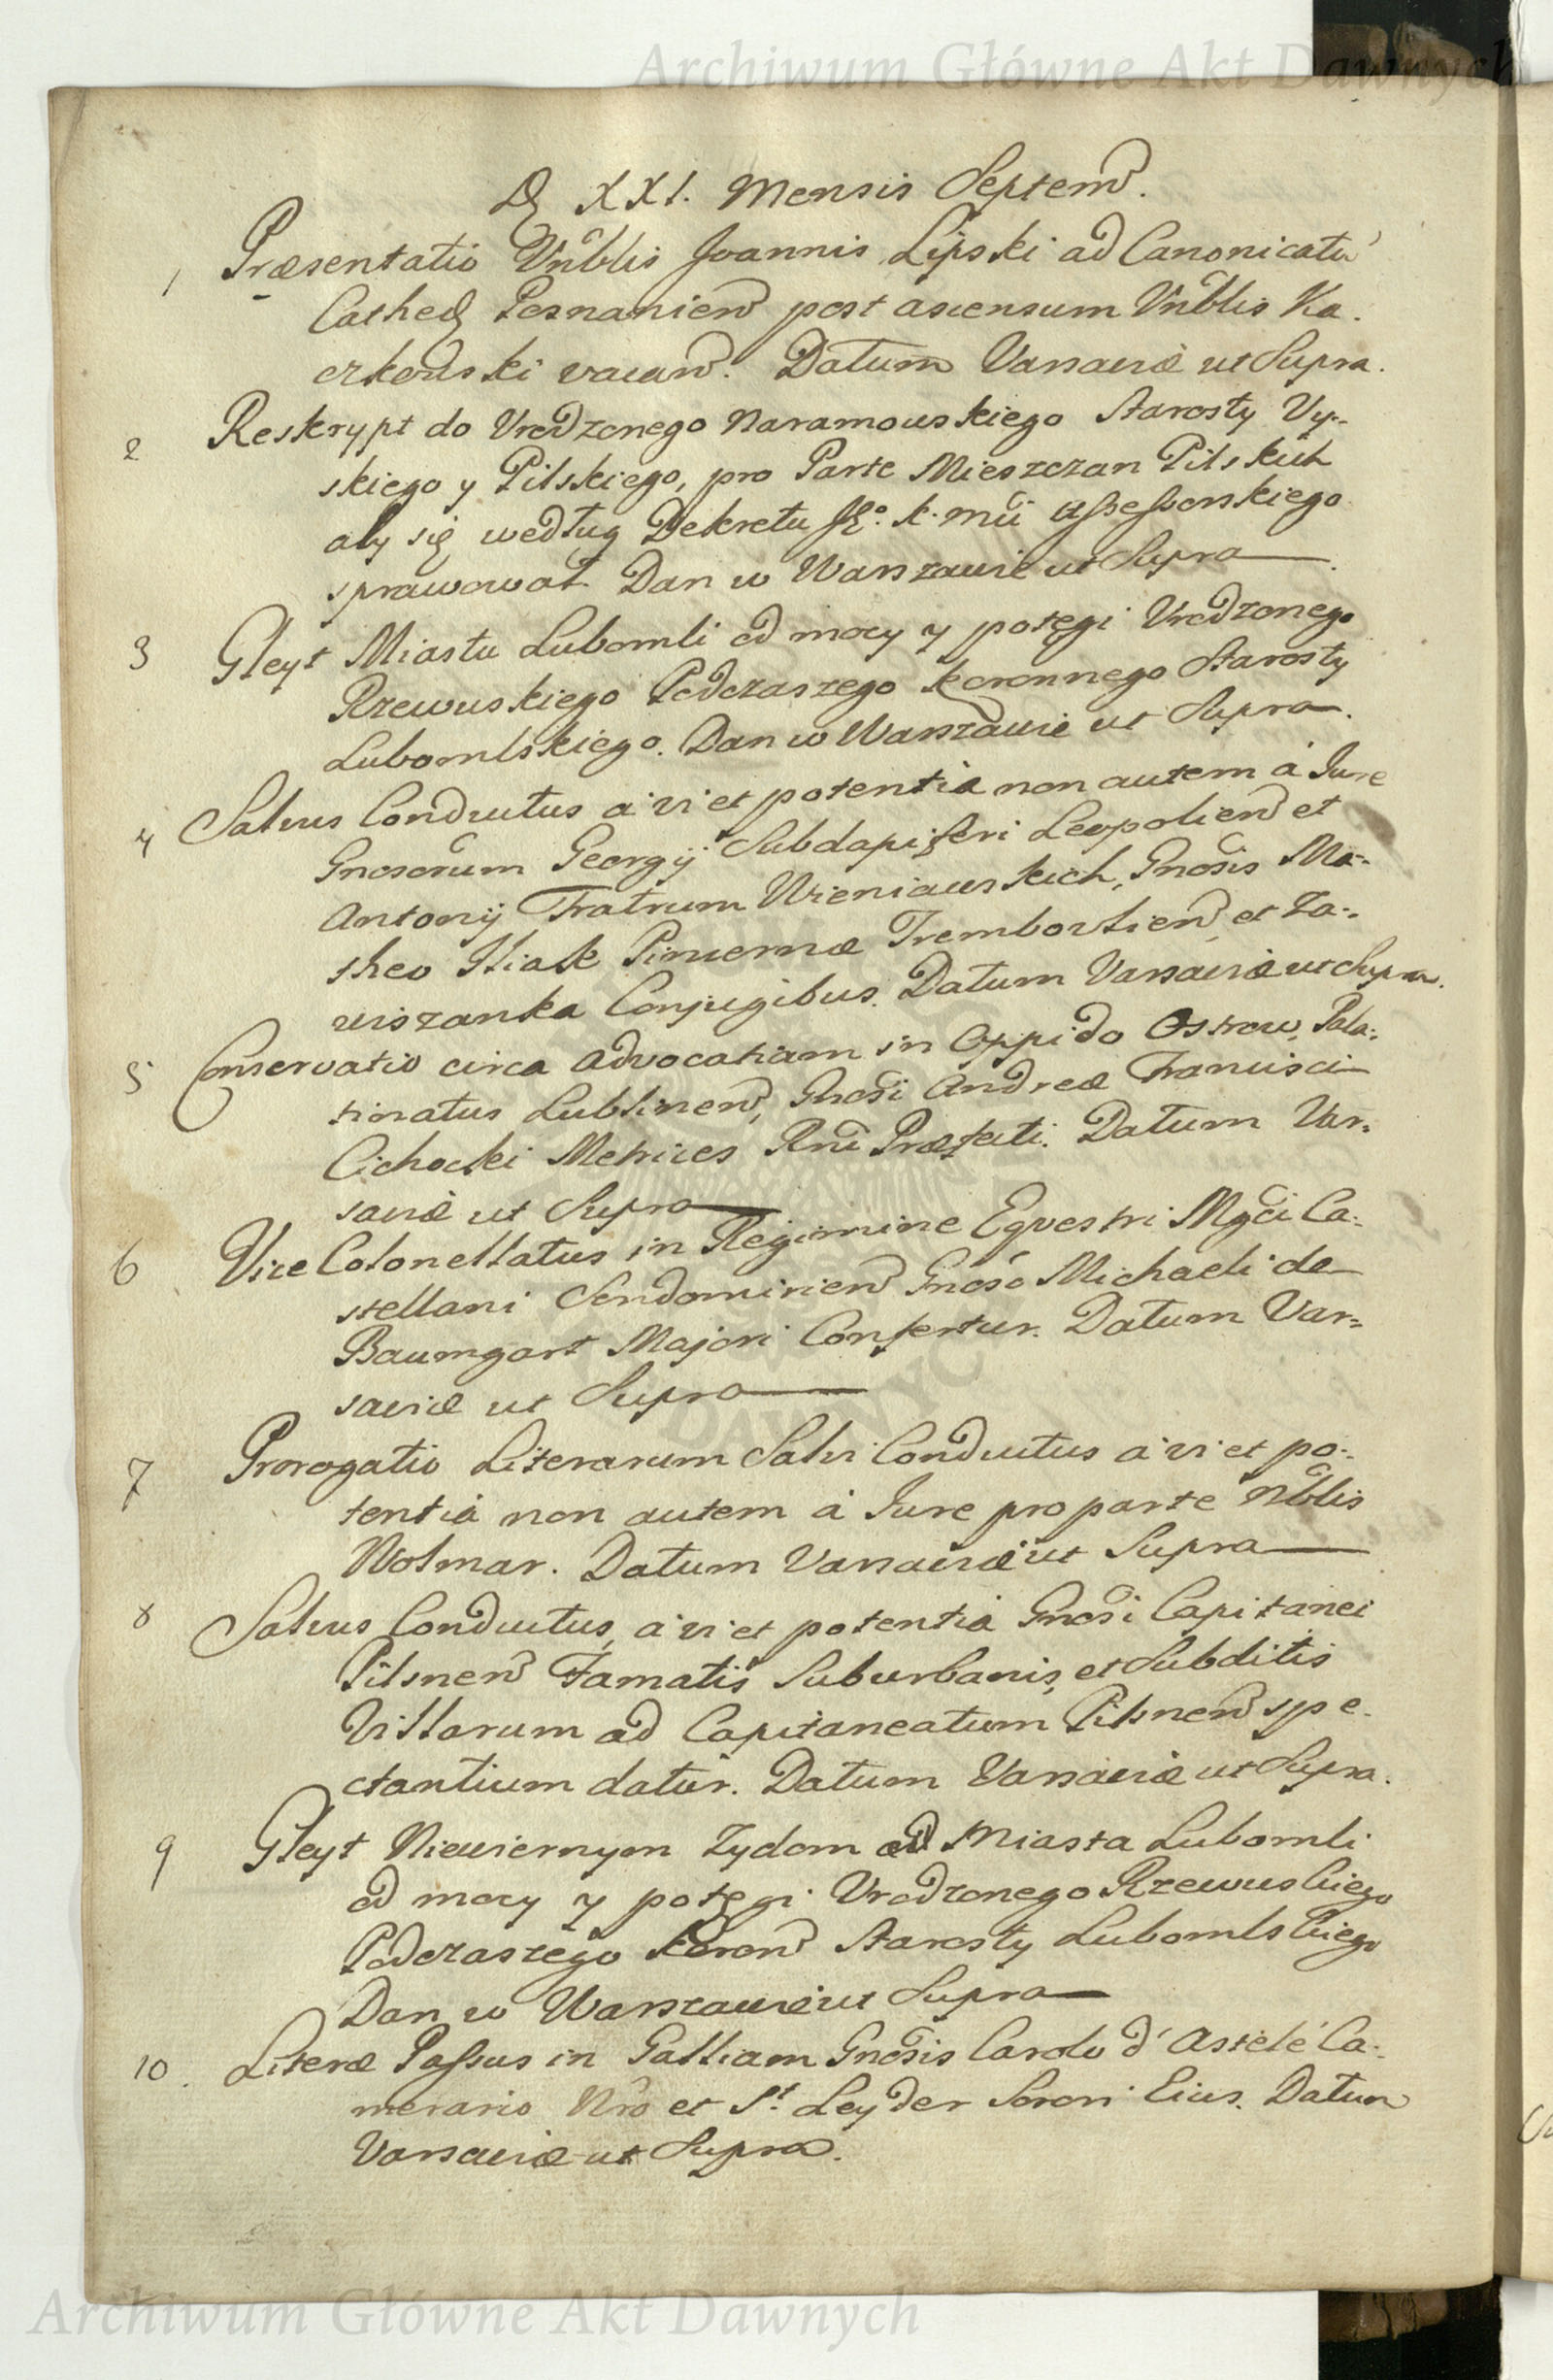 Archiwum Główne Akt Dawnych
D XXI. Mensis Septem.
1 Præsentatio Vnblis Joannis Lipski ad Canonicatu
Cathed Posnanien post ascensum Vnblis Ka-
czkowski vacan. Datum Varsaviæ ut Supra.
2 Reskrypt do Vrodzonego Naramowskiego Starosty Uy-
skiego y Pilskiego, pro Parte Mieszczan Pilskich
aby się według Dekretu JEo. K. Mci Assessorskiego
sprawował. Dan w Warszawie ut Supra
3 Gleyt Miastu Lubomli od mocy y potęgi Vrodzonego
Rzewuskiego Podczaszego Koronnego Starosty
Lubomlskiego. Dan w Warszawie ut Supra.
4 Salvus Conductus a vi et potentia non autem á Jure
Gnosorum Georgij Subdapiferi Leopolien et
Antonij Fratrum Wieniawskich, Gnosis Ma-
theo Pincernæ Tremboulien et Za-
wiszanka Conjugibus. Datum Varsaviæ ut Supra.
5 Conservatio circa Advocatiam in Oppido Ostrow, Pala-
tinatus Lublinen, Gnosi Andreæ Francisci
Cichocki Metrices Rni Præfecti. Datum Var-
saviæ ut Supra
6 Vice Colonellatus in Regimine Equestri Mgci Ca-
stellani Sendomirien Gnoso Michaeli de
Baumgart Majori Confertur. Datum Var-
saviæ ut Supra
7 Prorogatio Literarum Salvi Conductus a vi et po-
tentiá non autem á Jure pro parte Nblis
Wolmar. Datum Varsaviæ ut Supra
8 Salvus Conductus, a vi et potentiá Gnosi Capitanei
Pilsnen Famatis Suburbanis, et Subditis
Villarum ad Capitaneatum Pilsnen spe-
ctantium datur. Datum Varsaviæ ut Supra.
9 Gleyt Niewiernym Zydom Miasta Lubomli
od mocy y potęgi Vrodzonego Rzewuskiego
Podczaszego Koron Starosty Lubomlskiego
Dan w Warszawie ut Supra
10. Literæ Passus in Galliam Gnosis Carolo d' Astelé Ca-
merario Nro et St. Leyder Sorori Eius. Datum
Varsaviæ ut Supra.
Archiwum Główne Akt Dawnych